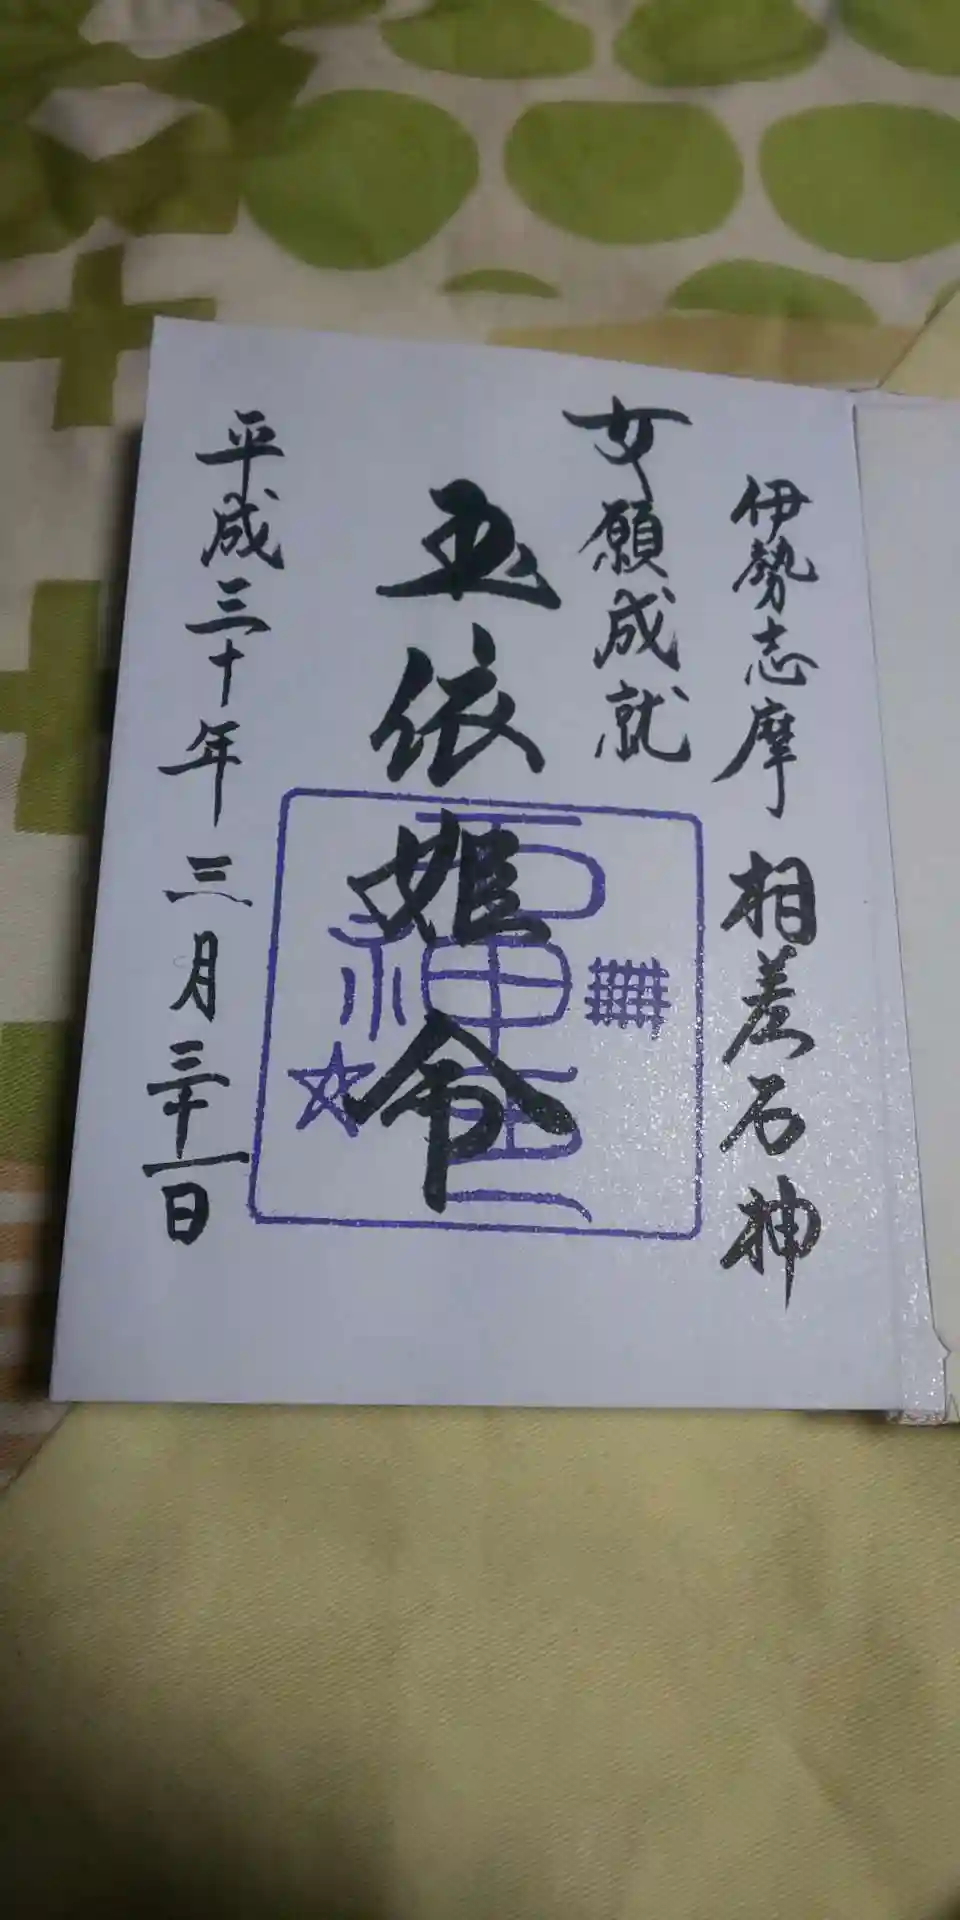 伊勢志摩 相差石神
女願成就
玉依姫命
石神
平成三十年 三月 三十一日